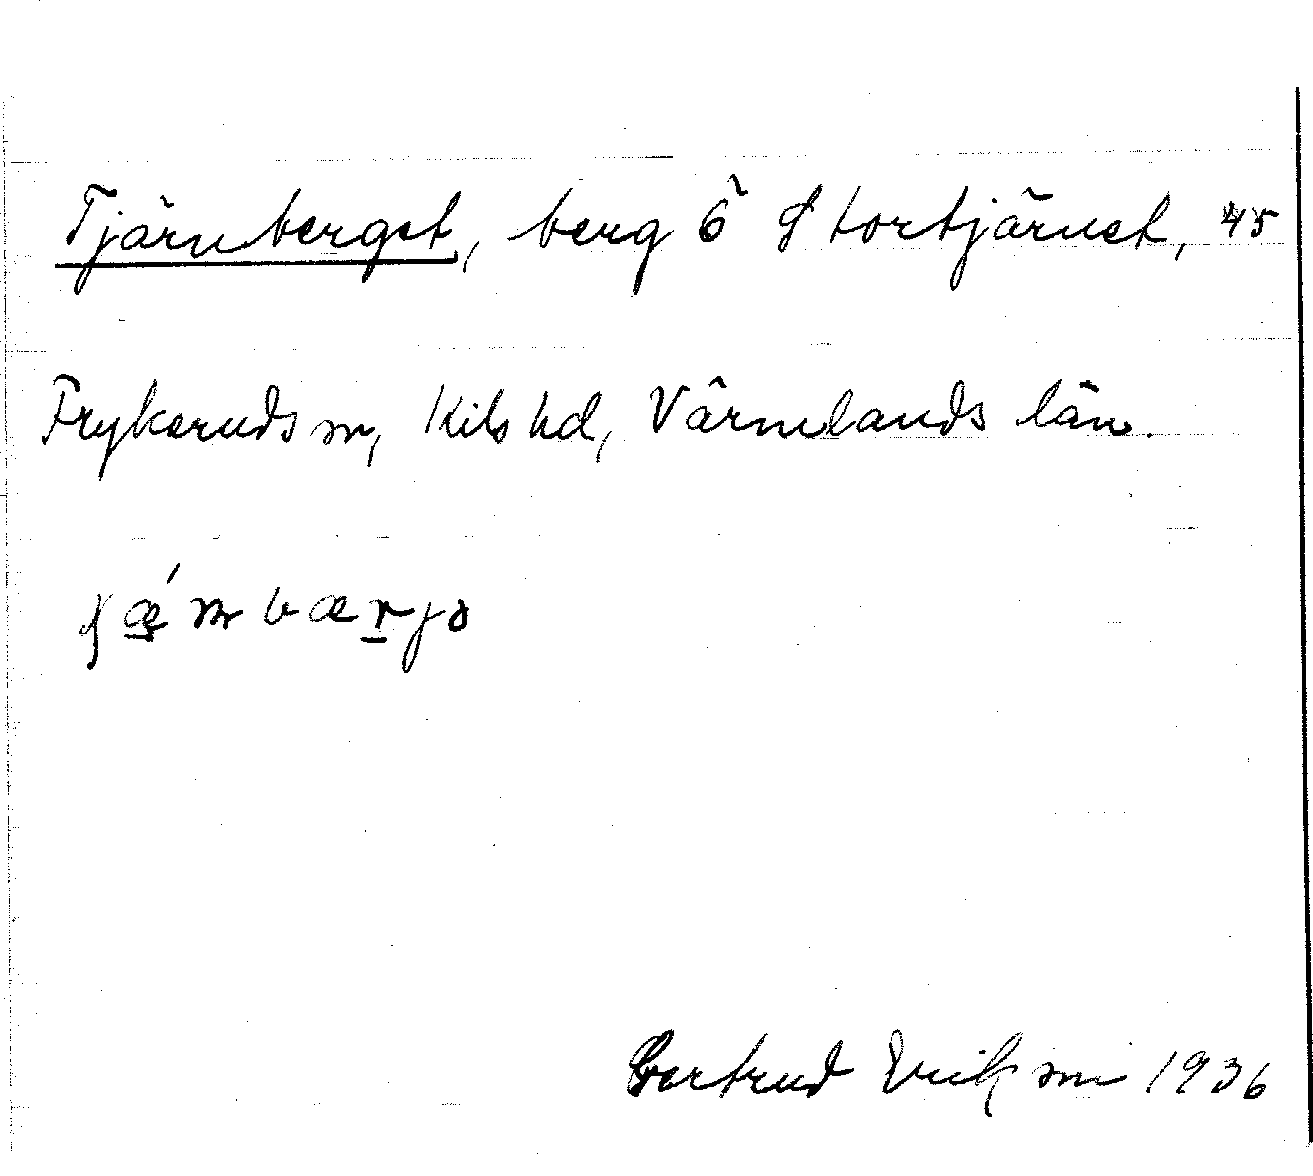 Tjärnberget, berg Ö Stortjärnet, 45
Frykeruds sn, Kils hd, Värmlands län.
Gertrud 1936